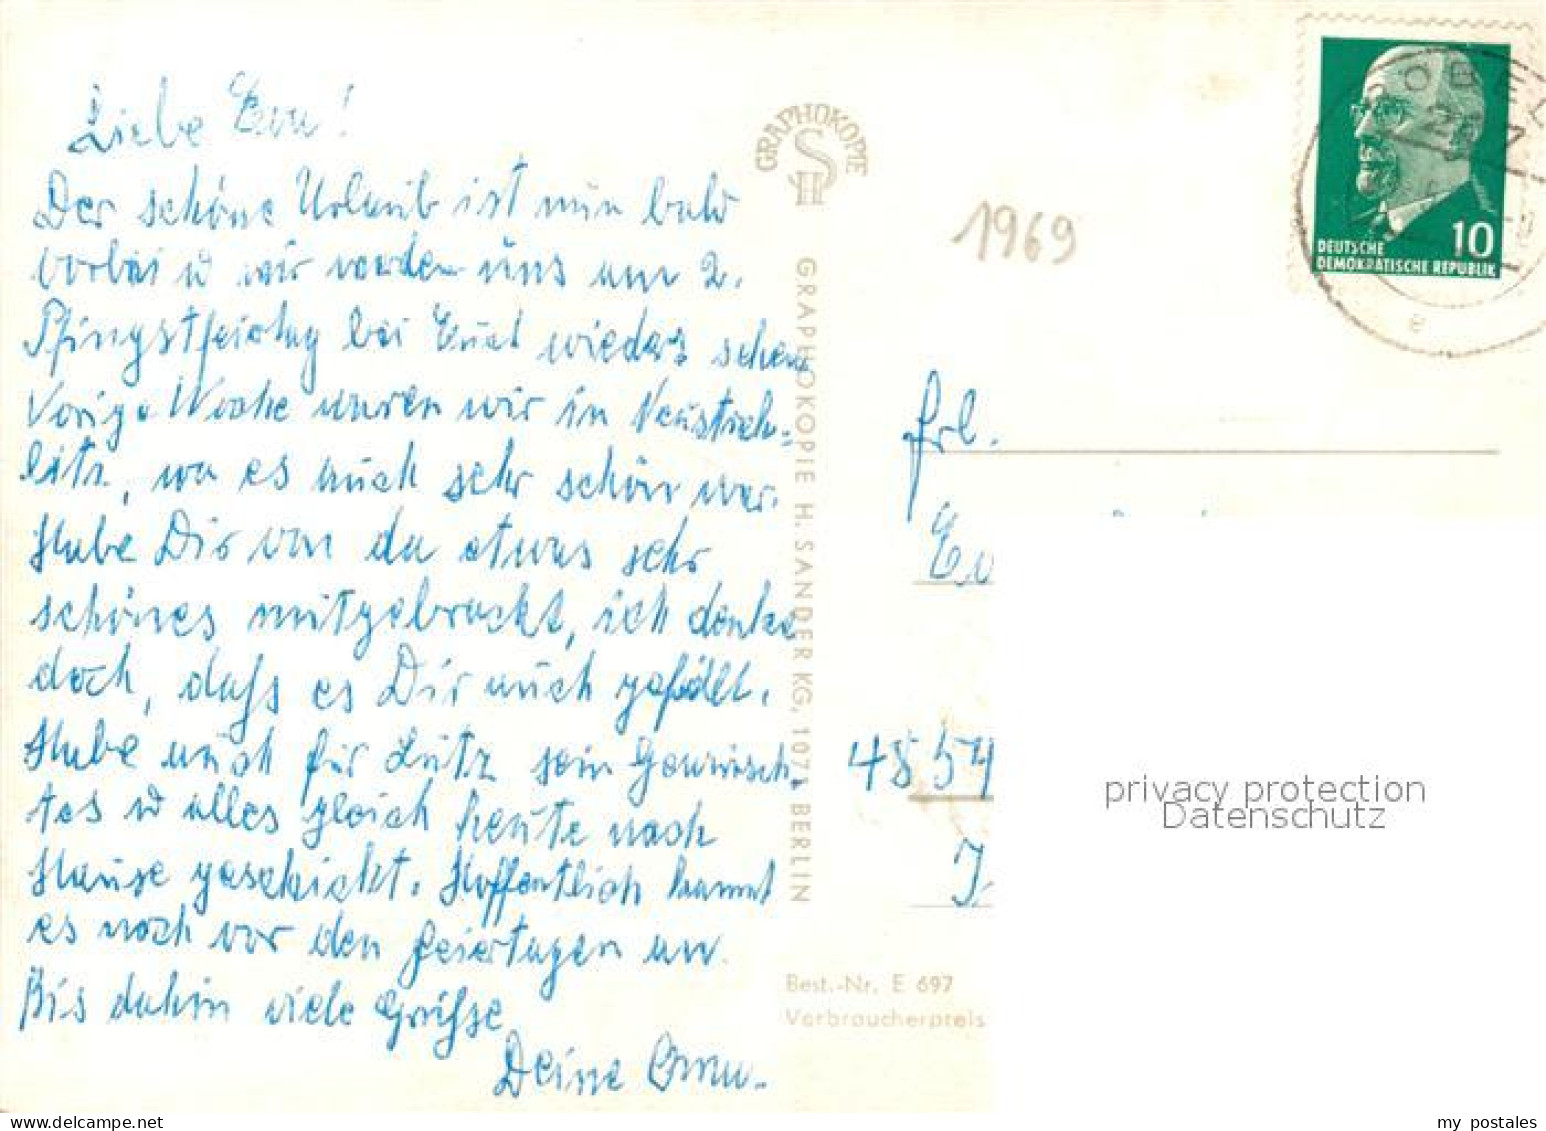 Liebe Eva!
Der schöne Urlaub ist nun bald
vorbei u wir werden uns am 2.
Pfingstfeiertag bei Euch wieder sehen
Vorige Woche waren wir in Neustreh-
litz, wo es auch sehr schön war.
Habe Dir von da etwas sehr
schönes mitgebracht, ich denke
doch, dass es Dir auch gefällt.
Habe auch für Lutz sein Gewünsch-
tes u alles gleich heute nach
Hause geschickt. Hoffentlich kommt
es noch vor den Feiertagen an.
Bis dahin viele Grüsse
Deine Oma.
GRAPHOKOPIE
SH
GRAPHOKOPIE H. SANDER KG, 1071 BERLIN
Best.-Nr. E 697
Verbraucherpreis
1969
DEUTSCHE
DEMOKRATISCHE REPUBLIK
10
Frl.
Ev
4854
privacy protection
Datenschutz
my postales